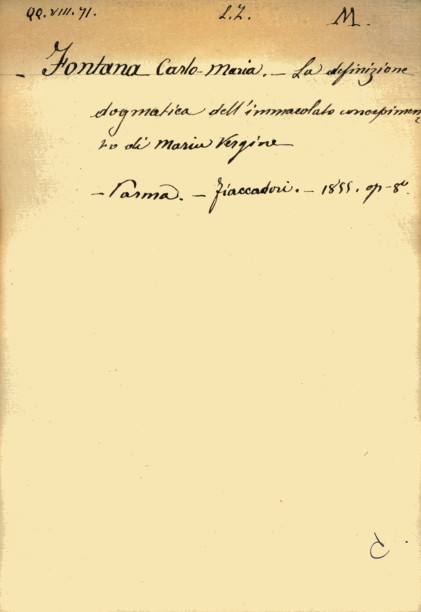 QQ.VIII.71. L.Z. M.
- Fontana Carlo Maria. - La definizione
dogmatica dell'immacolato concepimen
to di Maria Vergine
- Parma. - Fiaccadori. - 1855. op-8°.
C.